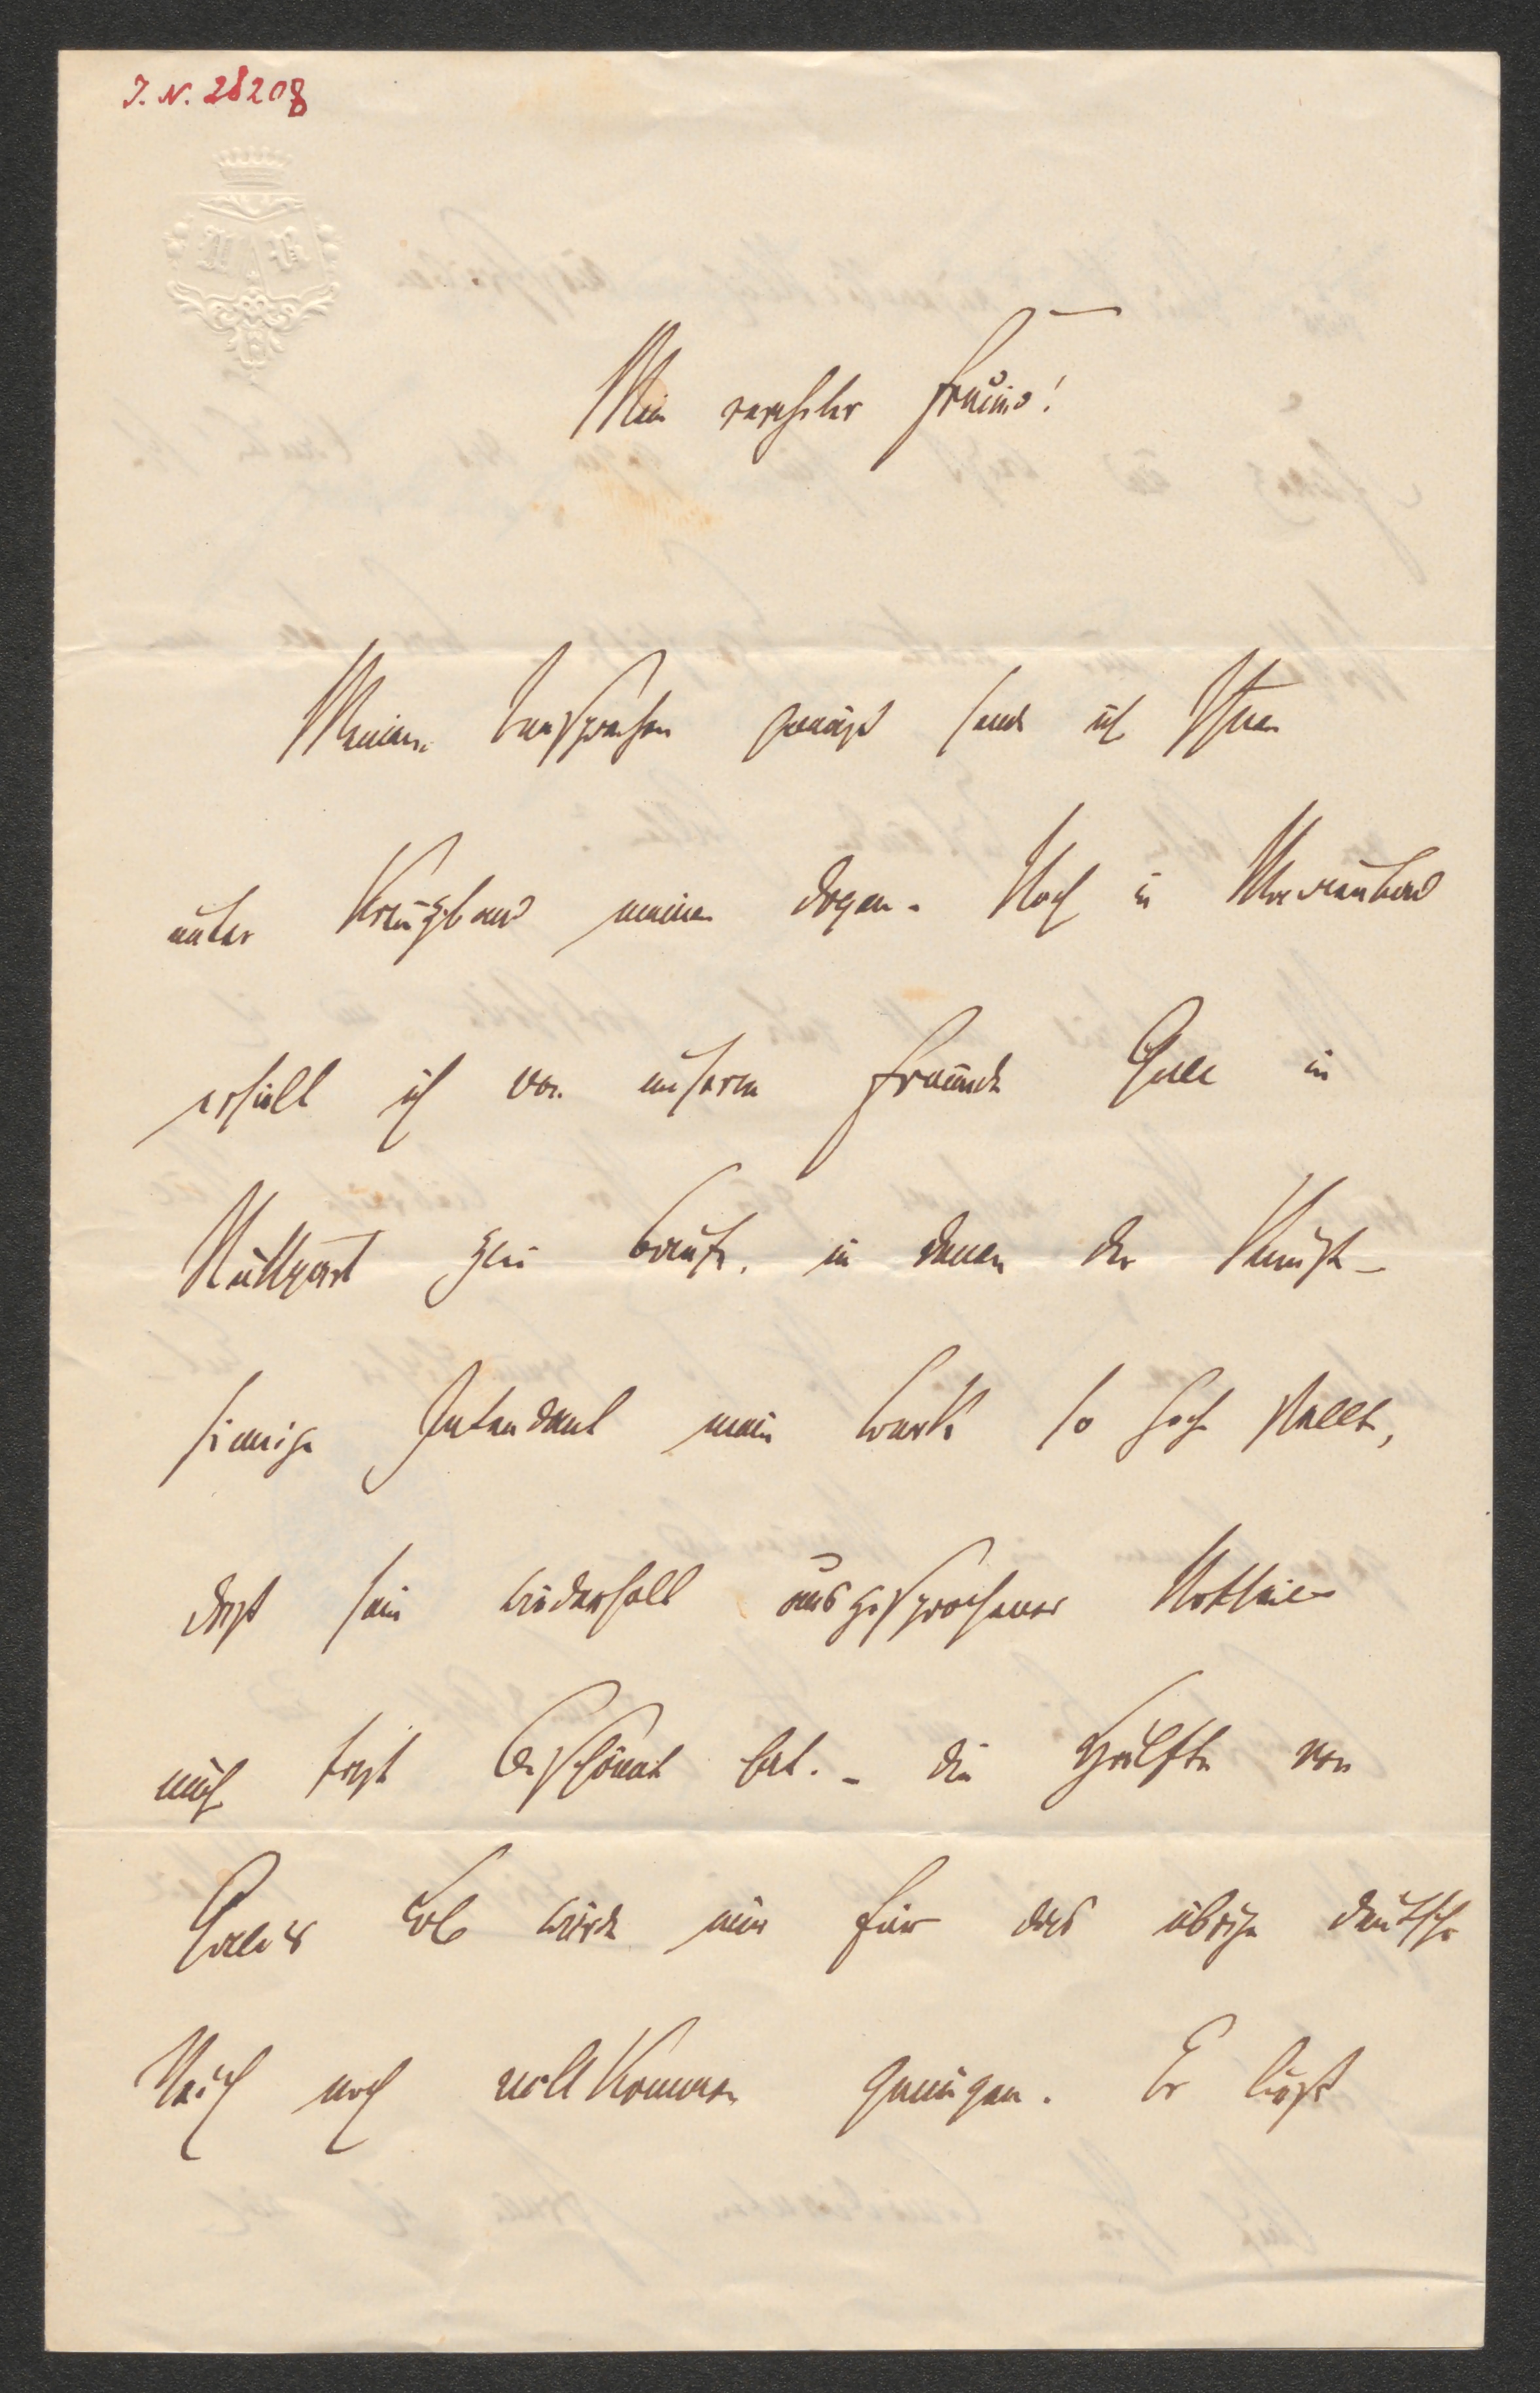 J. N. 28208
Mein verehrter Freund!
Meinem Versprechen gemäß sende ich Ihnen
unter Kreuzband meinen Dogen. Noch in Marienbad
erhielt ich von unserem Freunde Gall in
Stuttgart zwei Briefe, in denen der kunst-
sinnige Intendant mein Werk so hoch stellt,
daß sein wiederholt ausgesprochenes Urtheil
mich fast beschämt hat. – Die Hälfte von
Galls Lob würde mir für das übrige deutsche
Reich noch vollkommen genügen. Er liest